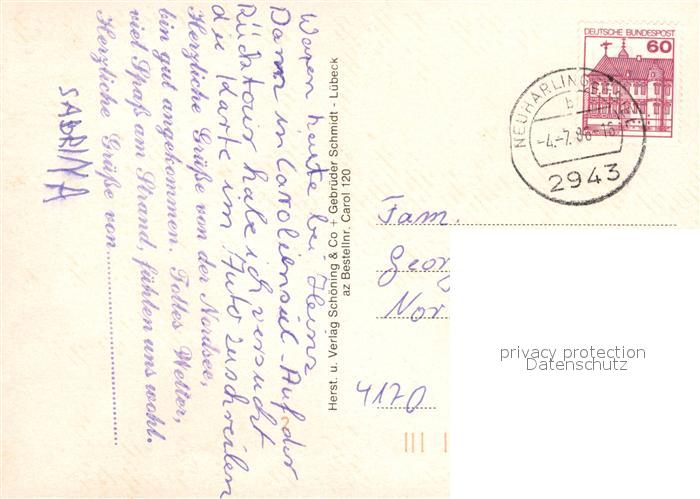 Waren heute bei Heinz
Dann in Carolinensiel. Auf der
Rücktour habe ich versucht
die Karte im Auto zuschreiben
Herzliche Grüße von der Nordsee,
bin gut angekommen. Tolles Wetter,
viel Spaß am Strand, fühlen uns wohl.
Herzliche Grüße von
SABRINA
Herst. u. Verlag Schöning & Co + Gebrüder Schmidt - Lübeck
az Bestellnr. Carol 120
DEUTSCHE BUNDESPOST
60
b
-4.-7.86-16
2943
Fam.
Georg
Nor
4170
privacy protection
Datenschutz